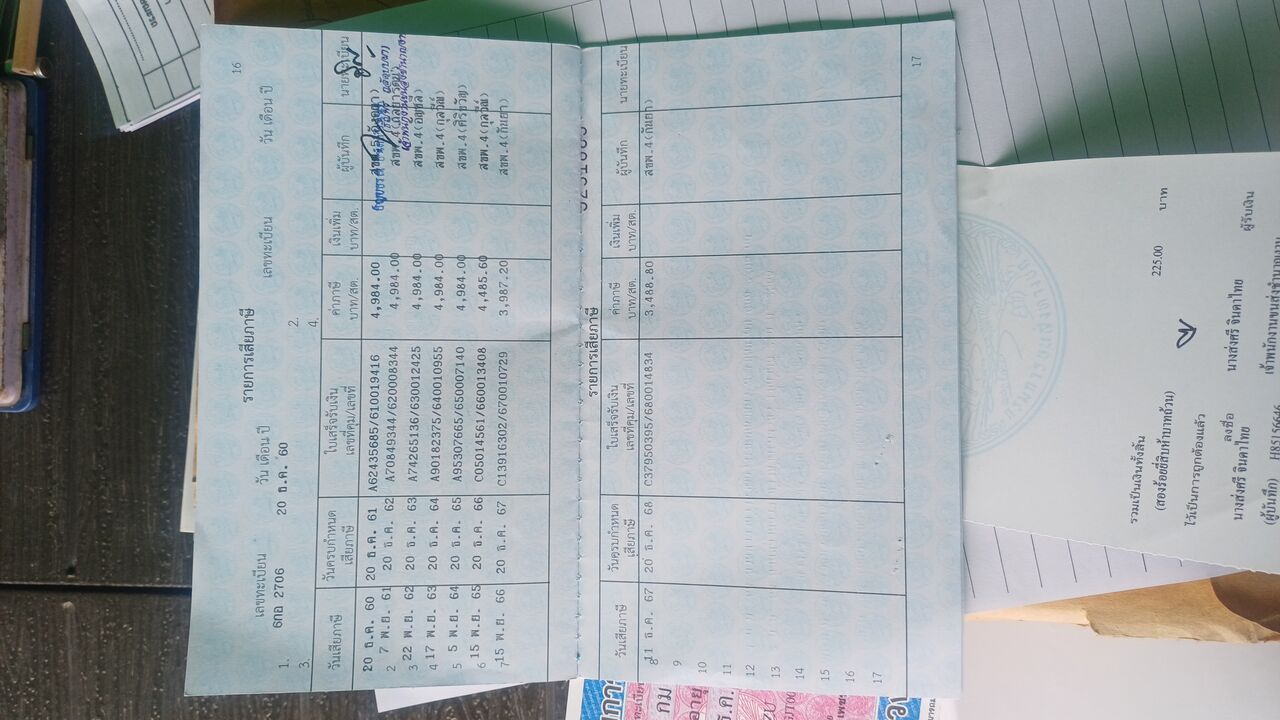 16
เลขทะเบียน วัน เดือน ปี เลขทะเบียน วัน เดือน ปี
1. 6กอ 2706 20 ธ.ค. 60 2.
3. 4.
รายการเสียภาษี
วันเสียภาษี วันครบกำหนดเสียภาษี ใบเสร็จรับเงิน เลขที่คุม/เลขที่ ค่าภาษี บาท/สต. เงินเพิ่ม บาท/สต. ผู้บันทึก นายทะเบียน
20 ธ.ค. 60 20 ธ.ค. 61 A62435685/610019416 4,984.00
2 7 พ.ย. 61 20 ธ.ค. 62 A70849344/620008344 4,984.00 สขพ.4
3 22 พ.ย. 62 20 ธ.ค. 63 A74265136/630012425 4,984.00 สขพ.4
4 17 พ.ย. 63 20 ธ.ค. 64 A90182375/640010955 4,984.00 สขพ.4(กุลวัญ)
5 5 พ.ย. 64 20 ธ.ค. 65 A95307665/650007140 4,984.00 สขพ.4(ศิริขวัญ)
6 15 พ.ย. 65 20 ธ.ค. 66 C05014561/660013408 4,485.60 สขพ.4(กุลวัญ)
7 15 พ.ย. 66 20 ธ.ค. 67 C13916302/670010729 3,987.20 สขพ.4(กันยา)
รายการเสียภาษี
วันเสียภาษี วันครบกำหนดเสียภาษี ใบเสร็จรับเงิน เลขที่คุม/เลขที่ ค่าภาษี บาท/สต. เงินเพิ่ม บาท/สต. ผู้บันทึก นายทะเบียน
8 11 ธ.ค. 67 20 ธ.ค. 68 C37950395/680014834 3,488.80 สขพ.4(กันยา)
9
10
11
12
13
14
15
16
17
17
รวมเป็นเงินทั้งสิ้น 225.00 บาท
(สองร้อยยี่สิบห้าบาทถ้วน)
ไว้เป็นการถูกต้องแล้ว
ลงชื่อ นางส่งศรี จินดาไทย ผู้รับเงิน
นางส่งศรี จินดาไทย เจ้าพนักงานขนส่งชำนาญงาน
(ผู้บันทึก)